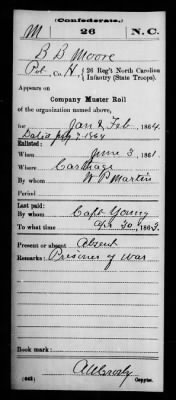 (Confederate.)
M 26 N.C.
B B Moore
Pvt., Co. H, 26 Reg't North Carolina
Infantry (State Troops).
Appears on
Company Muster Roll
of the organization named above,
for Jan & Feb, 1864.
Enlisted:
When June 3, 1861.
Where Carthage
By whom W P Martin
Period
Last paid:
By whom Capt Young
To what time Apr 30, 1863.
Present or absent Absent
Remarks: Prisoner of war
Book mark:
(642) Copyist.